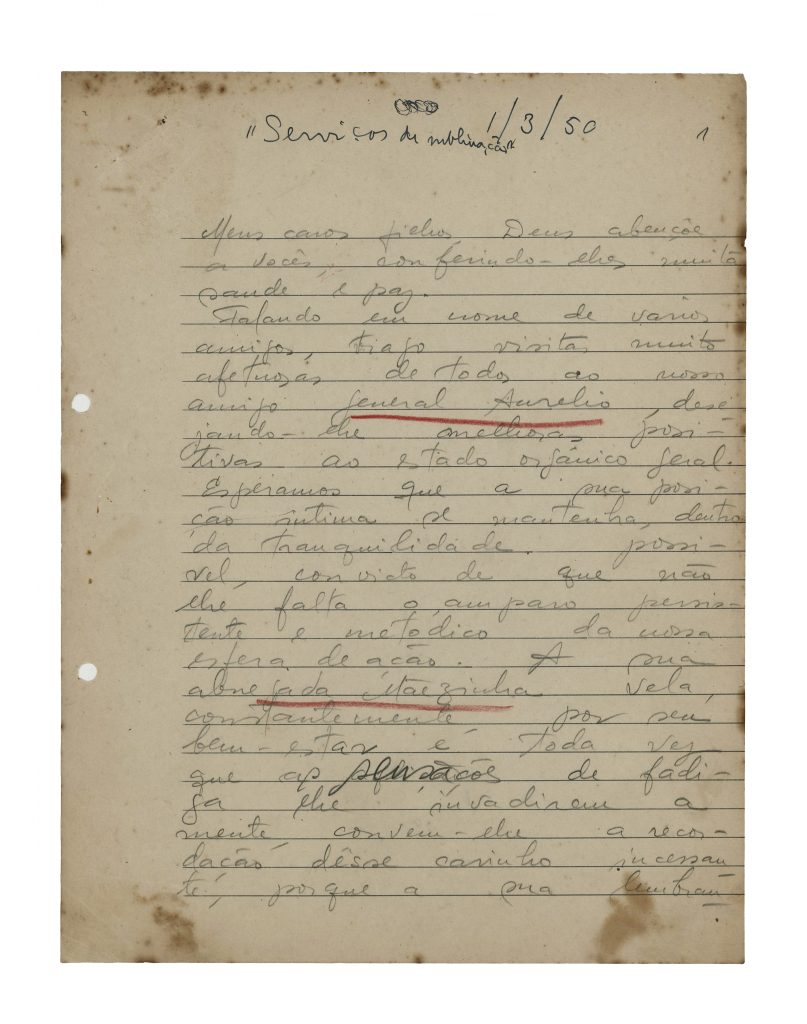 1/3/50
"Serviços de sublimação" 1
Meus caros filhos, Deus abençoe
a vocês, conferindo-lhes muita
saude e paz.
Falando em nome de varios
amigos, trago visitas muito
afetuosas de todos ao nosso
amigo general Aurelio, dese-
jando-lhe melhoras posi-
tivas ao estado orgânico geral.
Esperamos que a sua posi-
ção íntima se mantenha, dentro
da tranquilidade possi-
vel, convicto de que não
lhe falta o amparo persis-
tente e metódico da nossa
esfera de ação. A sua
abnegada Mãezinha vela,
constantemente, por seu
bem-estar e, toda vez
que as sensações de fadi-
ga lhe invadirem a
mente, convem-lhe a recor-
dação dêsse carinho incessan-
te, porque a sua lembran-